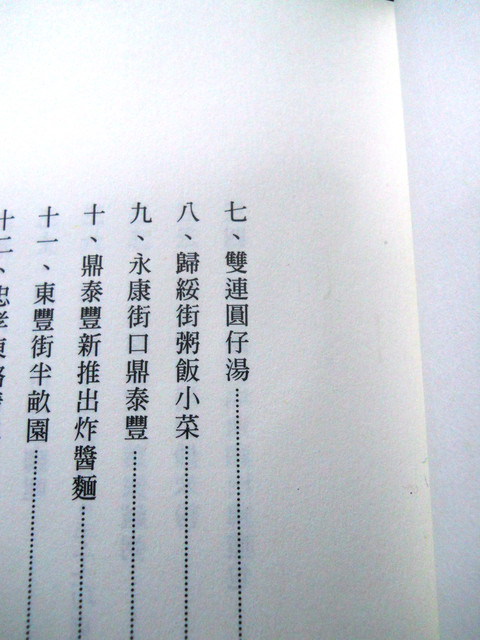 七、雙連圓仔湯
八、歸綏街粥飯小菜
九、永康街口鼎泰豐
十、鼎泰豐新推出炸醬麵
十一、東豐街半畝園
十二、忠孝東路